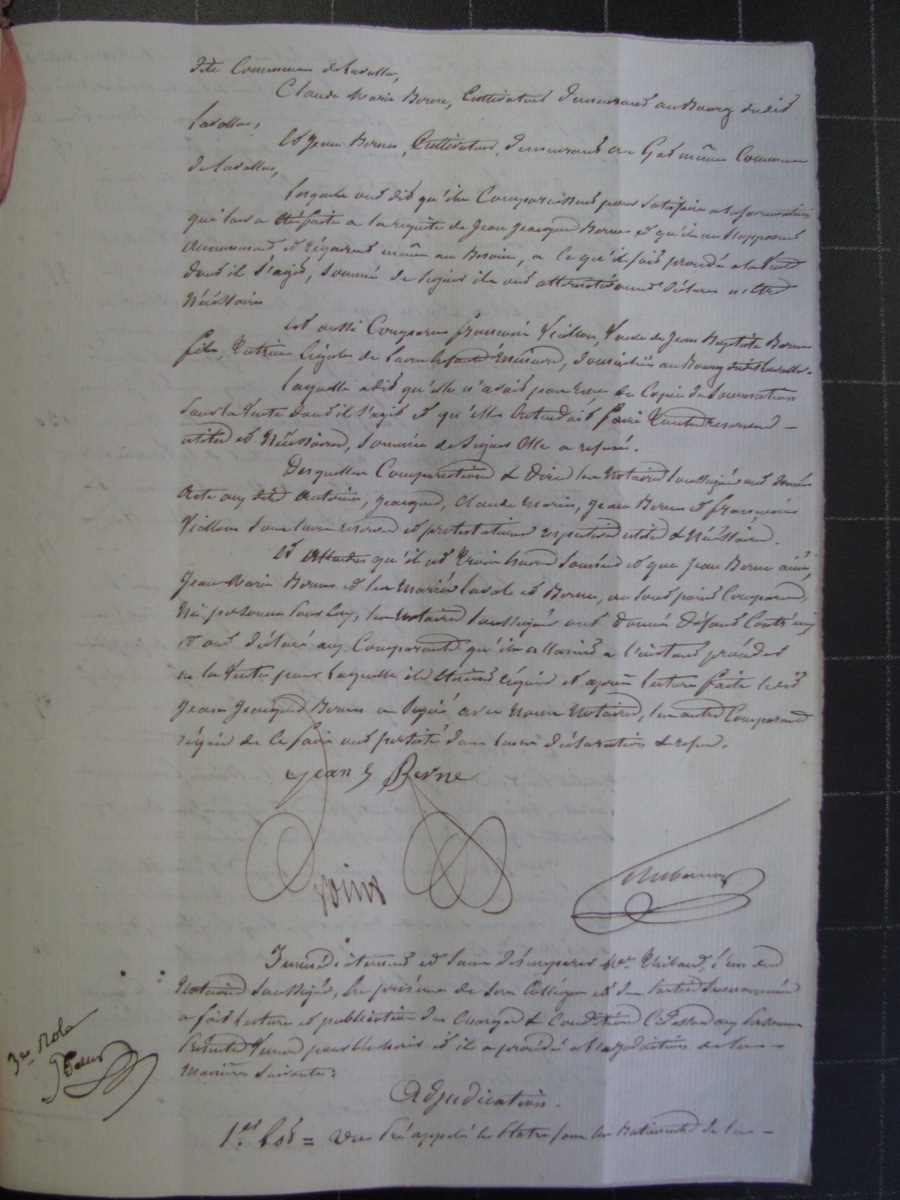 dite Commune de Lavalla,
Claude Marie Berne, Cultivateur demeurant au Bourg dudit
Lavalla,
Et Jean Berne, Cultivateur, demeurant au même Commune
de Lavalla,
Lesquels ont dit qu'ils Comparaissent pour satisfaire à la sommation
qui leur a été faite à la requête de Jean Jacques Berne et qu'ils ne s'opposent
aucunement et requièrent même au Besoin, à ce qu'il soit procédé à la Vente
dont il s'agit, sommés de signer ils ont déclaré n'être
Nécessaire
Est aussi Comparue françoise Viallon, Veuve de Jean Baptiste Berne
fils, Tutrice légale de leurs Enfants Mineurs, domiciliée au Bourg dudit Lavalla.
Laquelle a dit qu'elle n'avait pas reçu de Copie de Sommation
sous la Vente dont il s'agit et qu'elle entendait faire toutes réserves
utiles et Nécessaires, sommée de signer Elle a refusé.
Desquelles Comparutions & Dires les Notaires soussignés ont donné
Acte aux dits Antoine, Jacques, Claude Marie, Jean Berne et françoise
Viallon sous leurs réserves et protestations respectives utiles & Nécessaires.
Et Attendu qu'il est trois heures sonnées et que Jean Berne aîné,
Jean Marie Berne et les Mariés Laval et Berne, ne sont point Comparus,
Ni personne pour Eux, les Notaires soussignés ont donné défaut Contre eux
et ont déclaré aux Comparants qu'ils allaient à l'instant procéder
à la Vente pour laquelle ils étaient réunis et après lecture faite ledit
Jean Jacques Berne a signé avec Nous Notaires, les autres Comparants
requis de ce faire ont persisté dans leurs déclarations & refus.
Jean J Berne
Thibaud
Immédiatement et sans désemparer Me. Thibaud, l'un des
Notaires soussignés, en présence de son Collègue et des parties susnommées
a fait lecture et publication des Charges & Conditions aux personnes
pour Enchérir et il a procédé à l'adjudication de la
manière suivante:
Adjudication.
1er. Lot = Vu appelé le pour les Batiments de la
3e. role